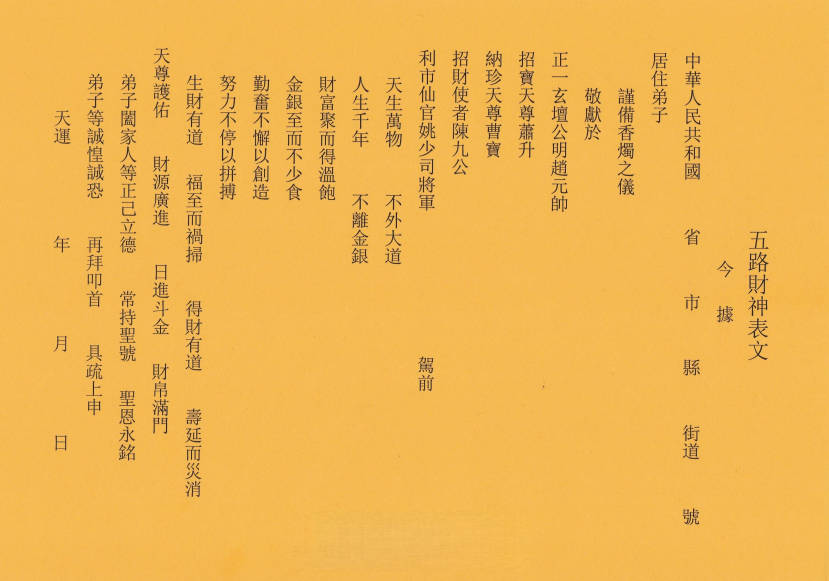 五路財神表文
今 據
中華人民共和國 省 市 縣 街道 號
居住弟子
謹備香燭之儀
敬獻於
正一玄壇公明趙元帥
招寶天尊蕭升
納珍天尊曹寶
招財使者陳九公
利市仙官姚少司將軍 駕前
天生萬物 不外大道
人生千年 不離金銀
財富聚而得溫飽
金銀至而不少食
勤奮不懈以創造
努力不停以拼搏
生財有道 福至而禍掃 得財有道 壽延而災消
天尊護佑 財源廣進 日進斗金 財帛滿門
弟子闔家人等正己立德 常持聖號 聖恩永銘
弟子等誠惶誠恐 再拜叩首 具疏上申
天運 年 月 日